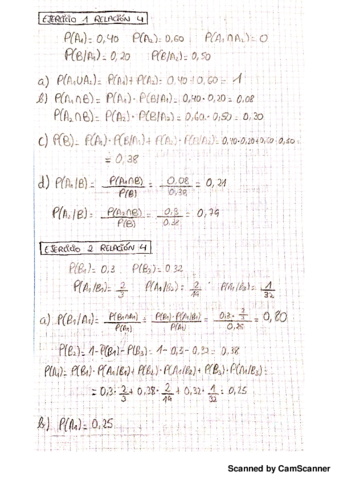 EJERCICIO 1 RELACIÓN 4
P(A₁)= 0,40 P(A₂)= 0,60 P(A₁∩A₂)= 0
P(B/A₁)= 0,20 P(B/A₂)= 0,50
a) P(A₁∪A₂)= P(A₁)+P(A₂)= 0.40+0.60= 1
b) P(A₁∩B)= P(A₁)·P(B/A₁)= 0,40·0.20= 0.08
P(A₂∩B)= P(A₂)·P(B/A₂)= 0,60·0.50= 0.30
c) P(B)= P(A₁)·P(B/A₁)+P(A₂)·P(B/A₂)=
= 0,38
d) P(A₁/B)= P(A₁∩B)/P(B) = 0.08/0.38 = 0,21
P(A₂/B)= P(A₂∩B)/P(B) = 0.3/0.38 = 0,79
EJERCICIO 2 RELACIÓN 4
P(B₁)= 0.3 P(B₃)= 0.32
P(A₁/B₁)= 2/3 P(A₁/B₂)= 2/19 P(A₁/B₃)= 1/32
a) P(B₁/A₁)= P(B₁∩A₁)/P(A₁) = P(B₁)·P(A₁/B₁)/P(A₁) = = 0,80
P(B₂)= 1-P(B₁)-P(B₃)= 1-0.3-0.32= 0.38
P(A₁)= P(B₁)·P(A₁/B₁)+P(B₂)·P(A₁/B₂)+P(B₃)·P(A₁/B₃)=
= 0.3·2/3+0.38·2/19+0.32·1/32= 0.25
b) P(A₁)= 0,25
Scanned by CamScanner